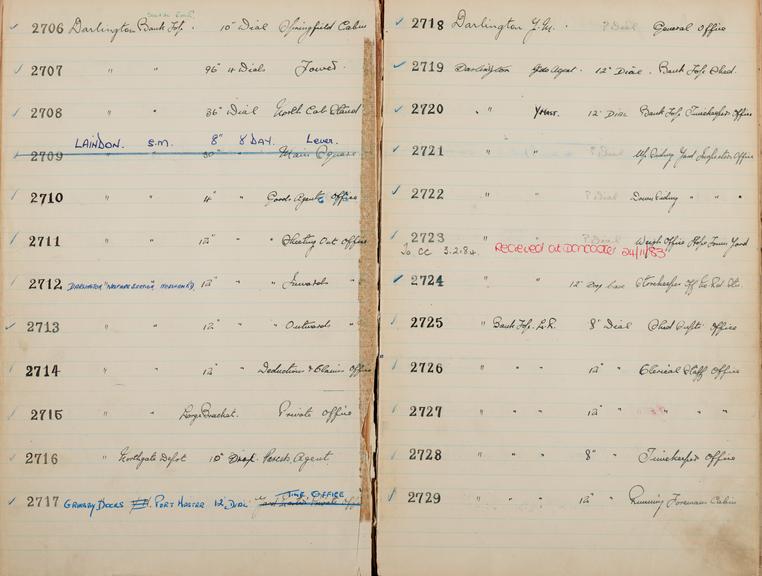 2706 Darlington Bank Top. 10" Dial Springfield Cabin
2707 " " 96" 4 Dials Tower.
2708 " " 36" Dial North Cab Stand
LAINDON. S.M. 8" 8 DAY. Lever.
2709 " " 30" " Main Square
2710 " " 4" " Goods Agents Office
2711 " " 12" " Sheeting Out Office
2712 DARLINGTON 12" " Inwards "
2713 " " 12" " Outwards "
2714 " " 12" " Deduction & Claims Office
2715 " " Large Bracket. Private Office
2716 " Northgate Depot 10" Parcels Agent
TIME OFFICE
2717 GRIMSBY DOCKS PORT MASTER 12" DIAL
2718 Darlington Y.M. ? Dial General Office
2719 Darlington Gds Agent. 12" Dial. Bank Top Shed.
2720 " 12" DIAL Bank Top Timekeepers Office
2721 " " ? Dial Up Siding Yard Inspectors Office
2722 " " ? Dial Down Siding " " "
2723 " ? Dial Weigh Office Hope Town Yard
To CC 3.2.84. RECIEVED at DONCASTER 24/11/83
2724 " " 12" Storekeeper
2725 " Bank Top L.R. 8" Dial Shed Supts Office
2726 " " " 12" " Clerical Staff Office
2727 " " " 12" " " " "
2728 " " " 8" " Timekeepers Office
2729 " " " 12" " Running Foremans Cabin